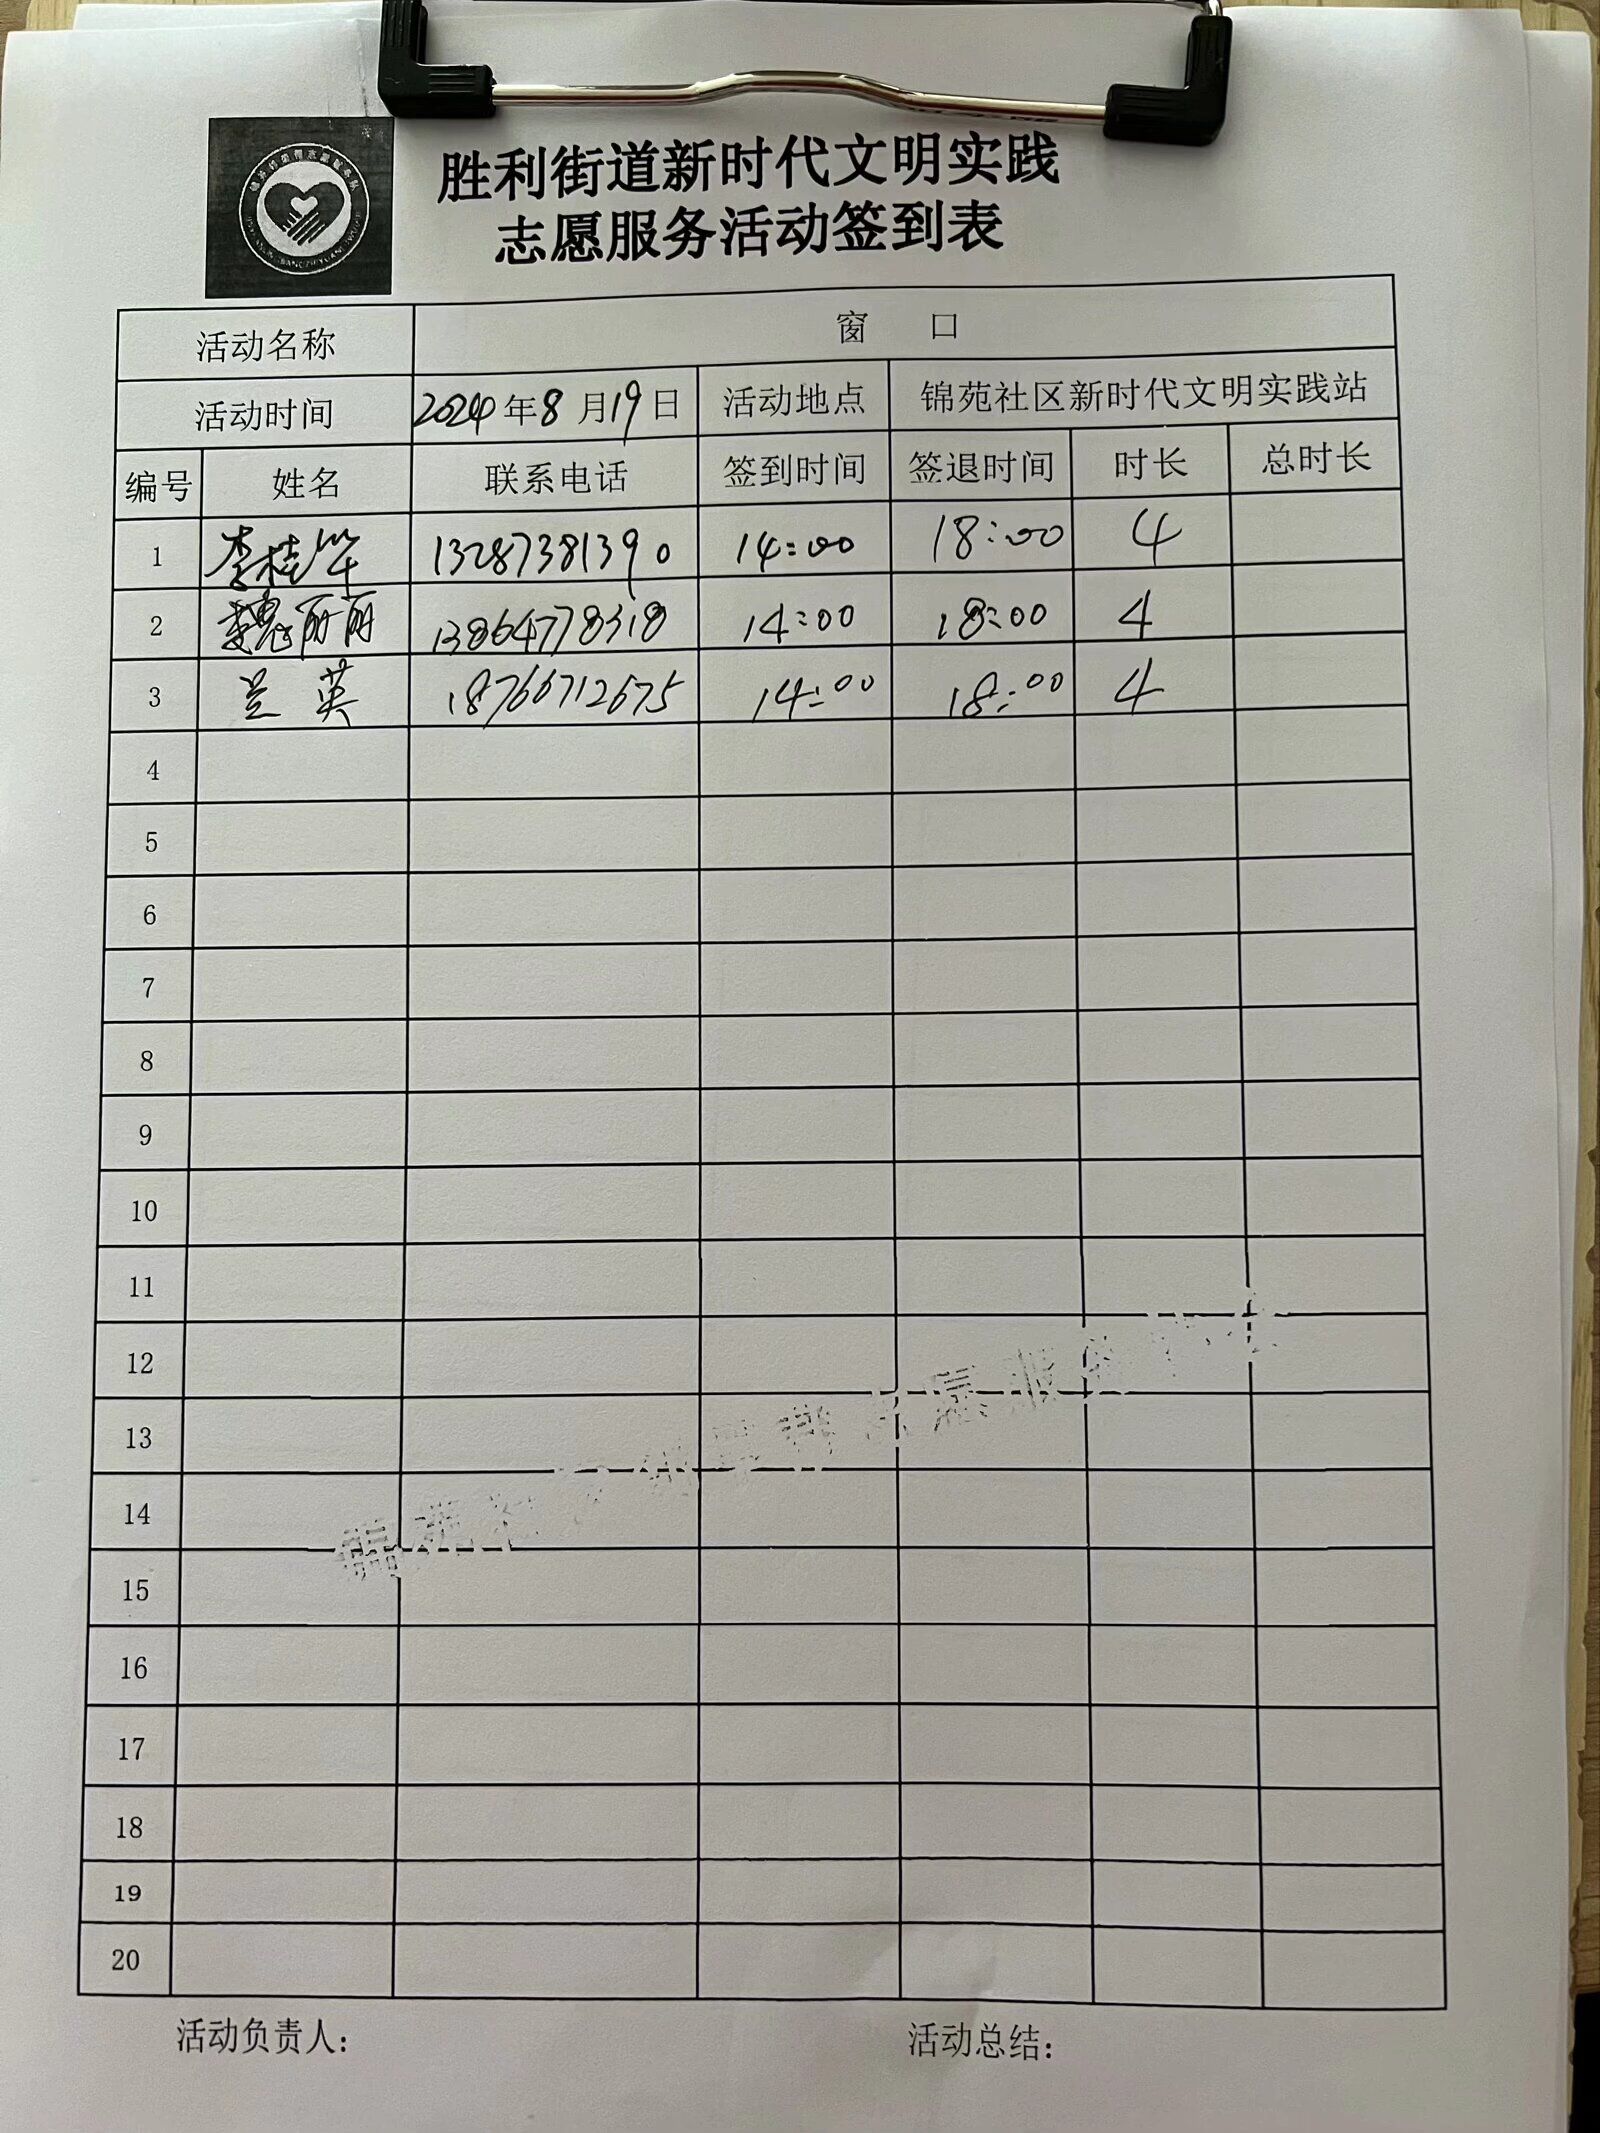 胜利街道新时代文明实践
志愿服务活动签到表
活动名称 窗 口
活动时间 2024年8月19日 活动地点 锦苑社区新时代文明实践站
编号 姓名 联系电话 签到时间 签退时间 时长 总时长
1 李桂华 13287381390 14:00 18:00 4
2 魏丽丽 13864778318 14:00 18:00 4
3 兰英 18766712675 14:00 18:00 4
4
5
6
7
8
9
10
11
12
13
14
15
16
17
18
19
20
活动负责人: 活动总结: